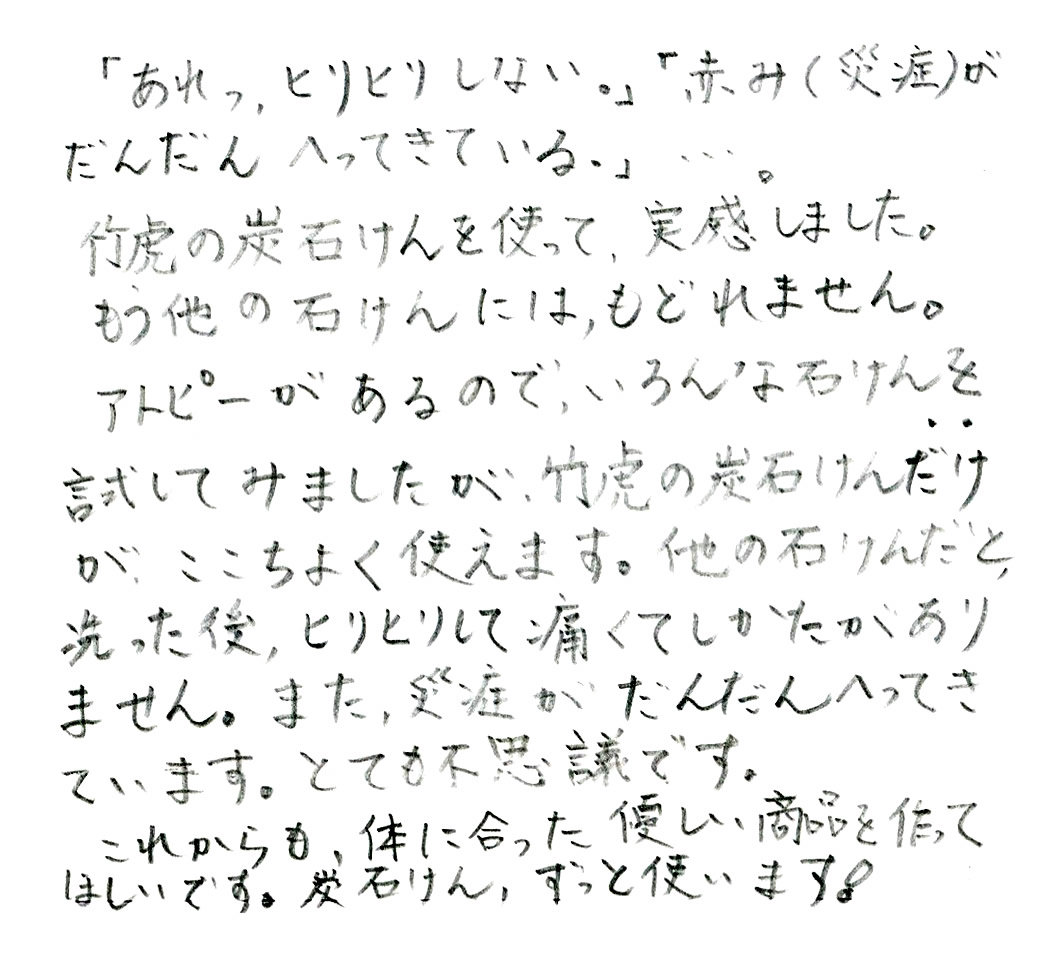 「あれっ,ヒリヒリしない。」「赤み(災症)が
だんだんへってきている。」…。
竹虎の炭石けんを使って,実感しました。
もう他の石けんには,もどれません。
アトピーがあるので,いろんな石けんを
試してみましたが,竹虎の炭石けんだけ
が,ここちよく使えます。他の石けんだと,
洗った後,ヒリヒリして痛くてしかたがあり
ません。また,災症がだんだんへってき
ています。とても不思議です。
これからも,体に合った優しい商品を作って
ほしいです。炭石けん,ずっと使います!